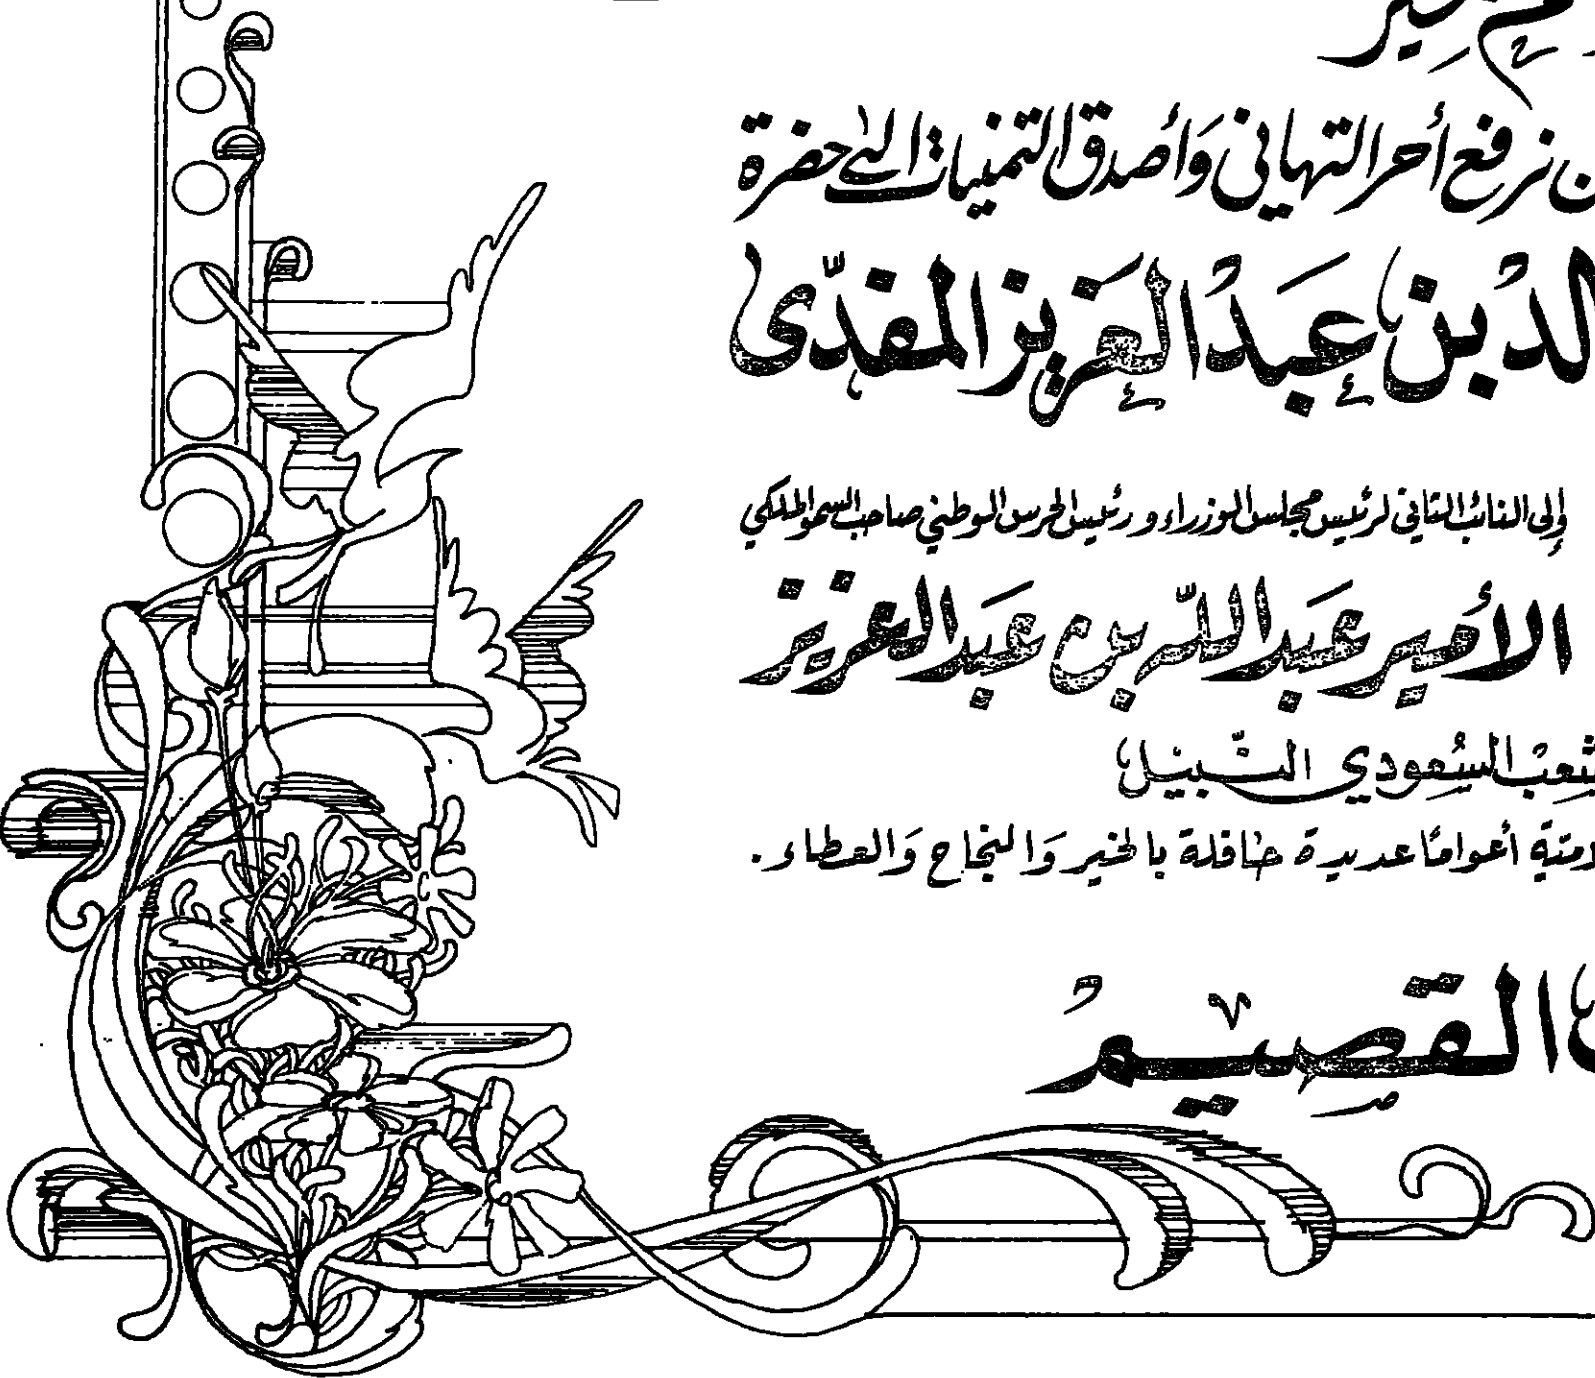 ن نرفع أحر التهاني وَأصدق التمنيات إلى حضرة
لدبن عبد العزيز المفدّى
إلى النائب الثاني لرئيس مجلس الوزراء ورئيس الحرس الوطني صاحب السمو الملكي
الأمير عبد اللّه بن عبد العزيز
شعب السعودي النّبيل
أعوامًا عديدة حافلة بالخير وَالنجاح وَالعطاء.
القصيم